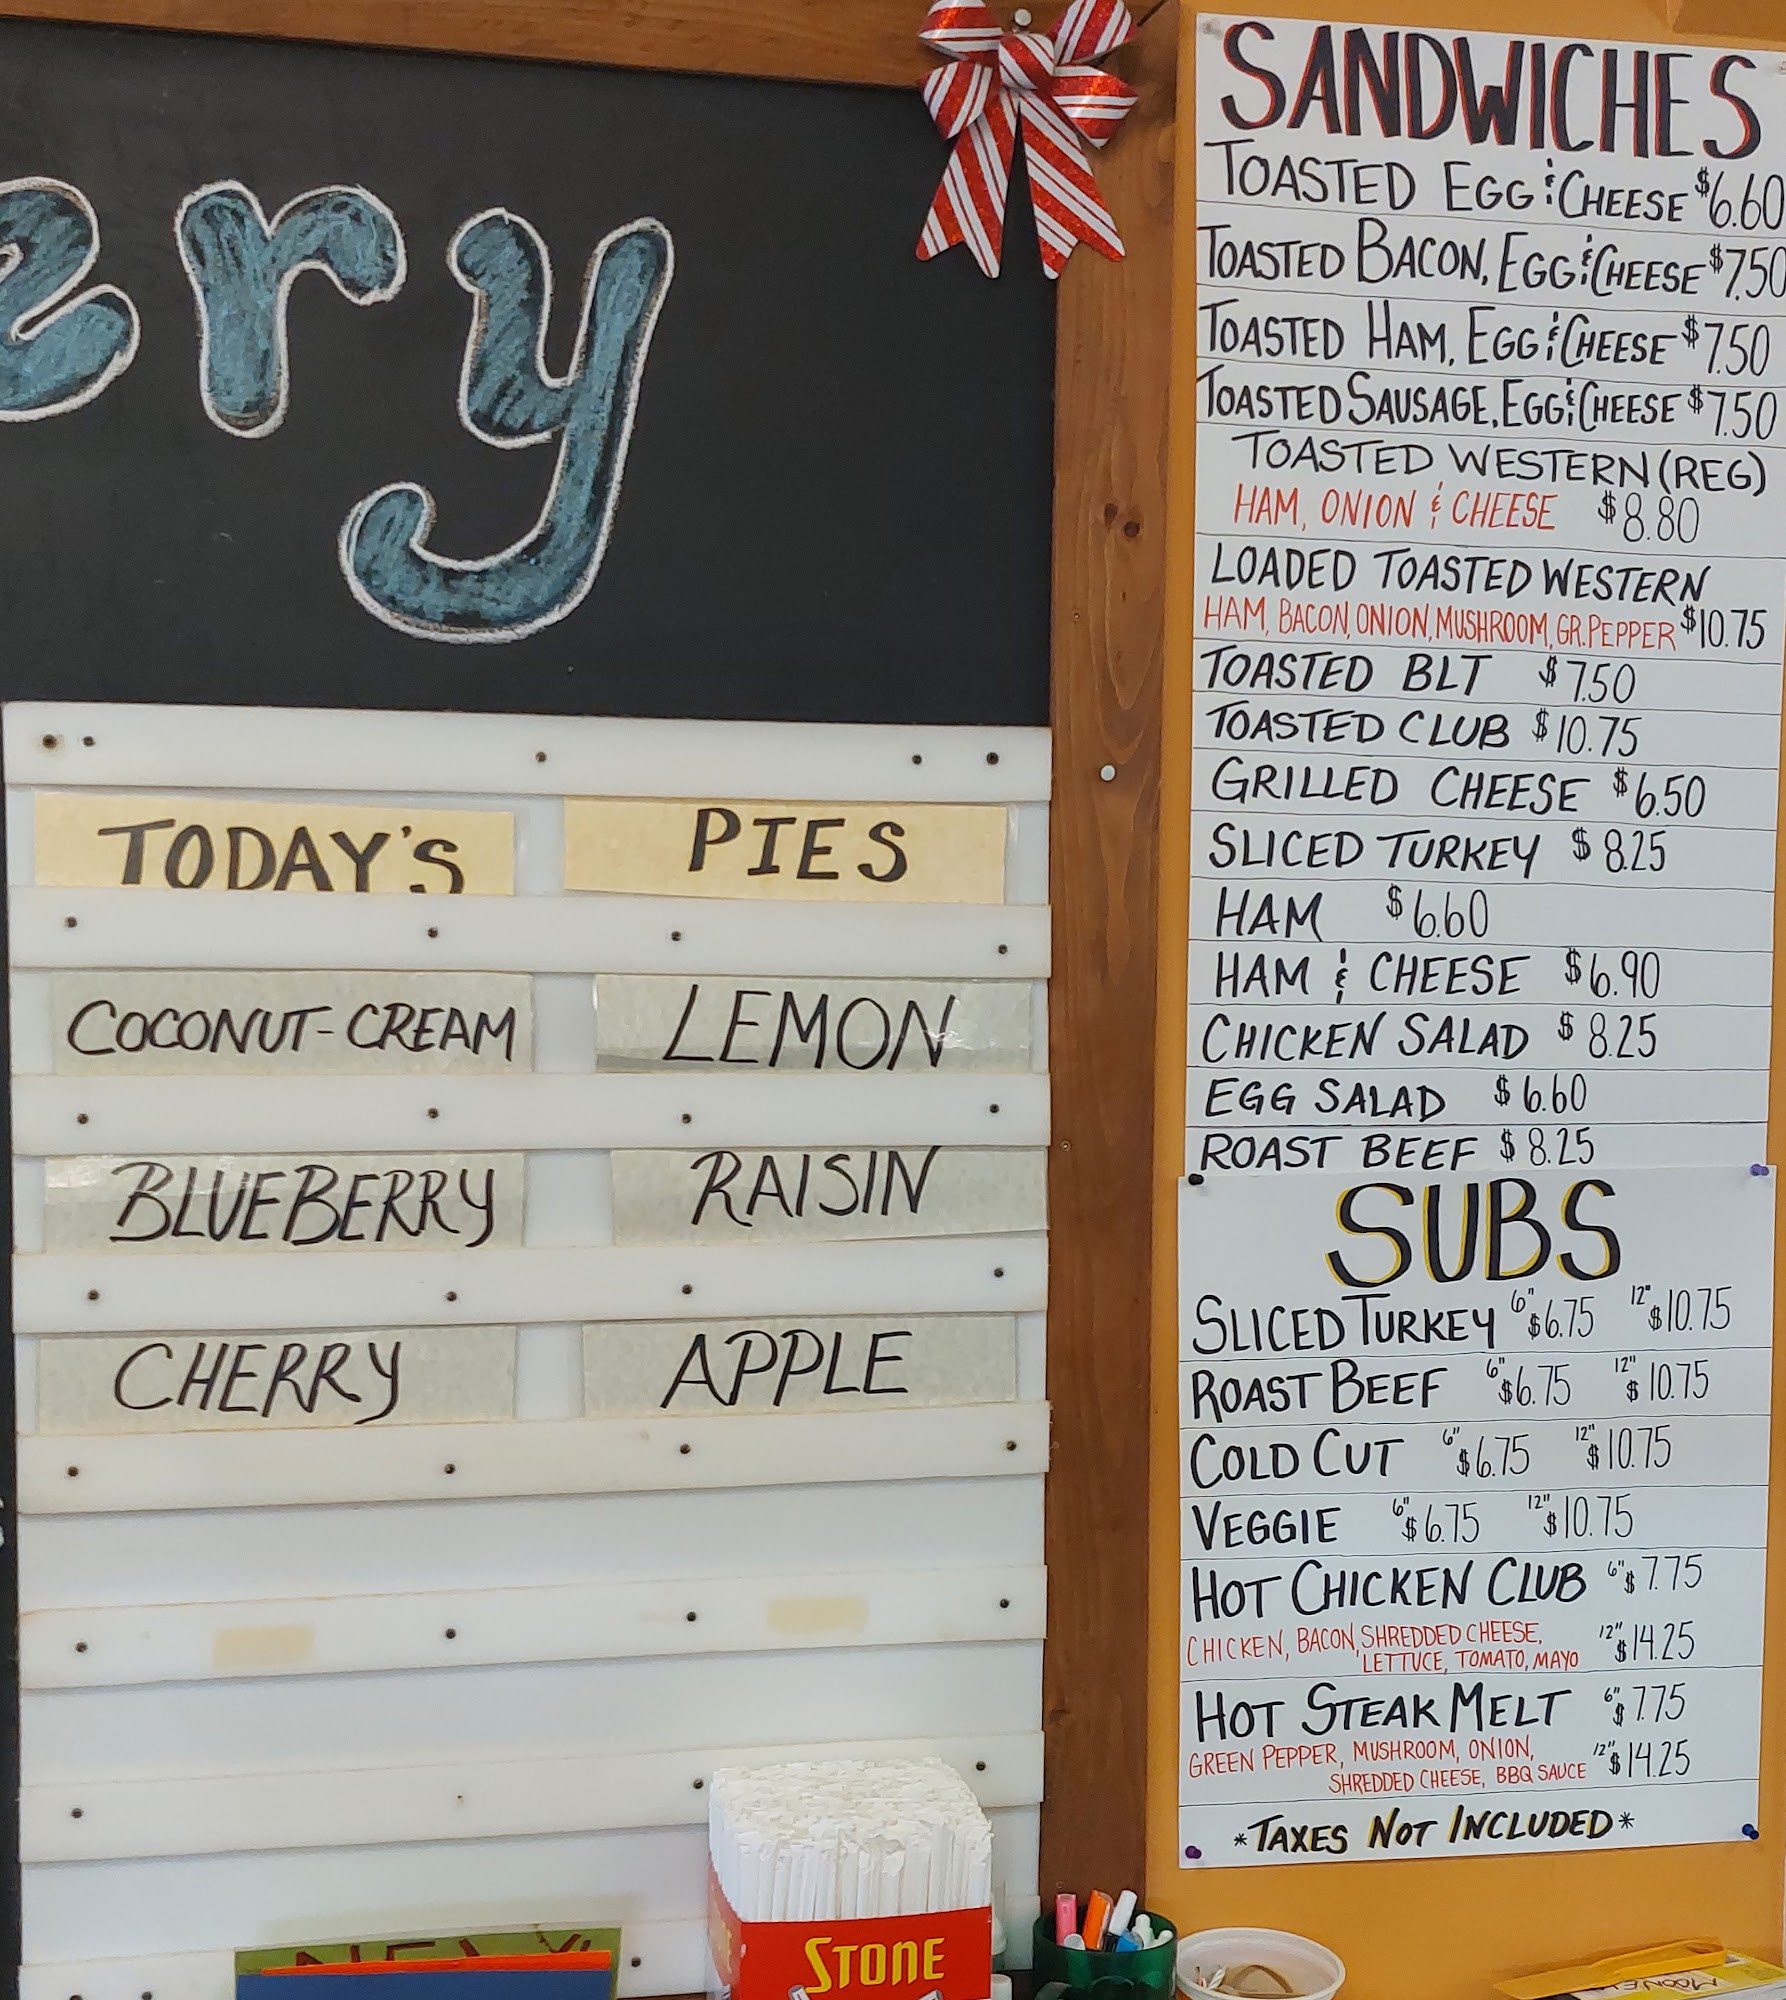 ery
TODAY'S PIES
COCONUT-CREAM LEMON
BLUEBERRY RAISIN
CHERRY APPLE
STONE
SANDWICHES
TOASTED EGG & CHEESE $6.60
TOASTED BACON, EGG & CHEESE $7.50
TOASTED HAM, EGG & CHEESE $7.50
TOASTED SAUSAGE, EGG & CHEESE $7.50
TOASTED WESTERN (REG)
HAM, ONION & CHEESE $8.80
LOADED TOASTED WESTERN
HAM, BACON, ONION, MUSHROOM, GR. PEPPER $10.75
TOASTED BLT $7.50
TOASTED CLUB $10.75
GRILLED CHEESE $6.50
SLICED TURKEY $8.25
HAM $6.60
HAM & CHEESE $6.90
CHICKEN SALAD $8.25
EGG SALAD $6.60
ROAST BEEF $8.25
SUBS
SLICED TURKEY 6" $6.75 12" $10.75
ROAST BEEF 6" $6.75 12" $10.75
COLD CUT 6" $6.75 12" $10.75
VEGGIE 6" $6.75 12" $10.75
HOT CHICKEN CLUB 6" $7.75
CHICKEN, BACON, SHREDDED CHEESE, 12" $14.25
LETTUCE, TOMATO, MAYO
HOT STEAK MELT 6" $7.75
GREEN PEPPER, MUSHROOM, ONION, 12" $14.25
SHREDDED CHEESE, BBQ SAUCE
*TAXES NOT INCLUDED*